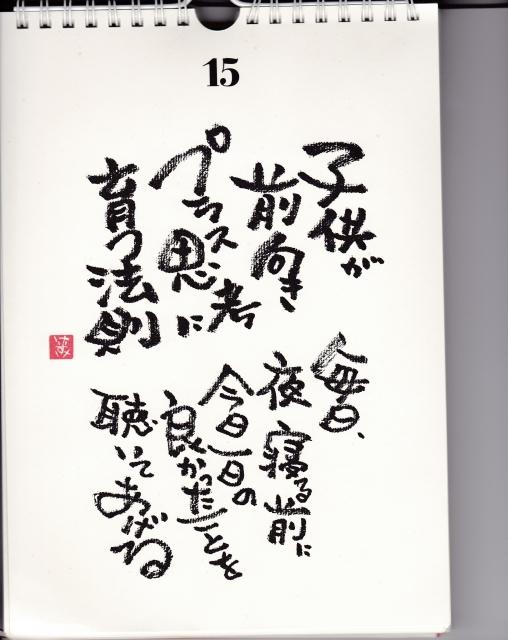 15
子供が
前向き
プラス思考
に
育つ法則
毎日、
夜寝る前に
今日一日の
良かったことを
聴いてあげる